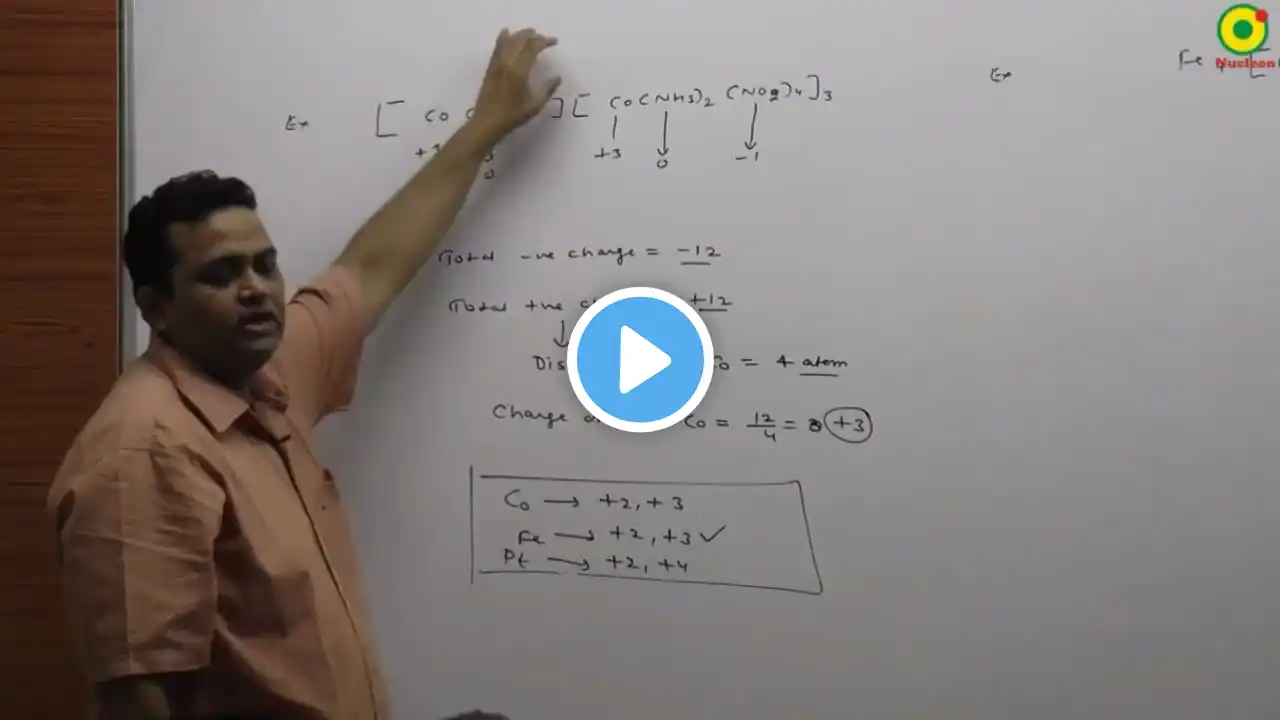 Nucleon
Fe 4 [
Ex [ Co ] [ Co (NH3)2 (NO2)4 ]3 Ex
+3 +3 0 -1
0
Total -ve charge = -12
Total +ve +12
Co = 4 atom
Charge Co = 12/4 = +3
Co → +2, +3
Fe → +2, +3 ✓
Pt → +2, +4